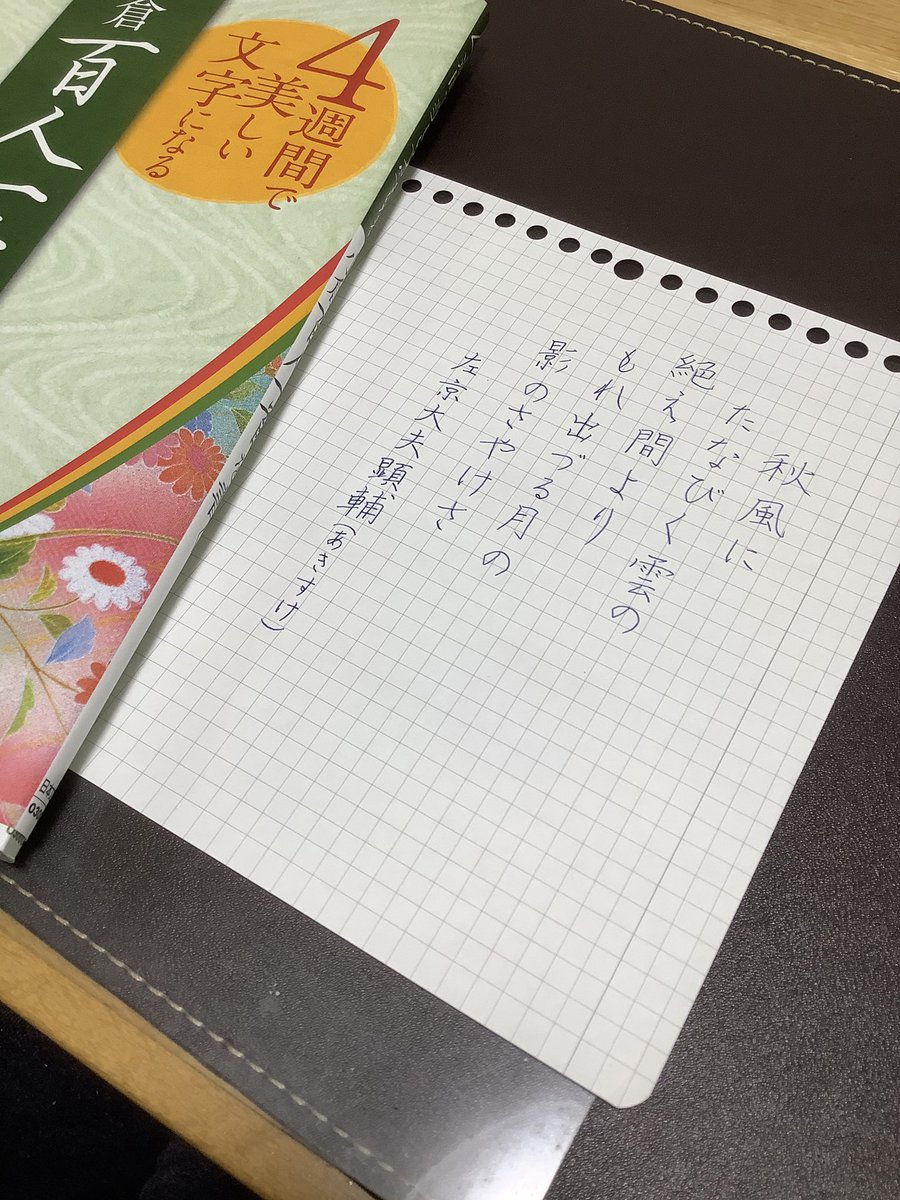 倉百人一
4週間で
美しい
文字になる
秋風に
たなびく雲の
絶え間より
もれ出づる月の
影のさやけさ
左京大夫顕輔(あきすけ)